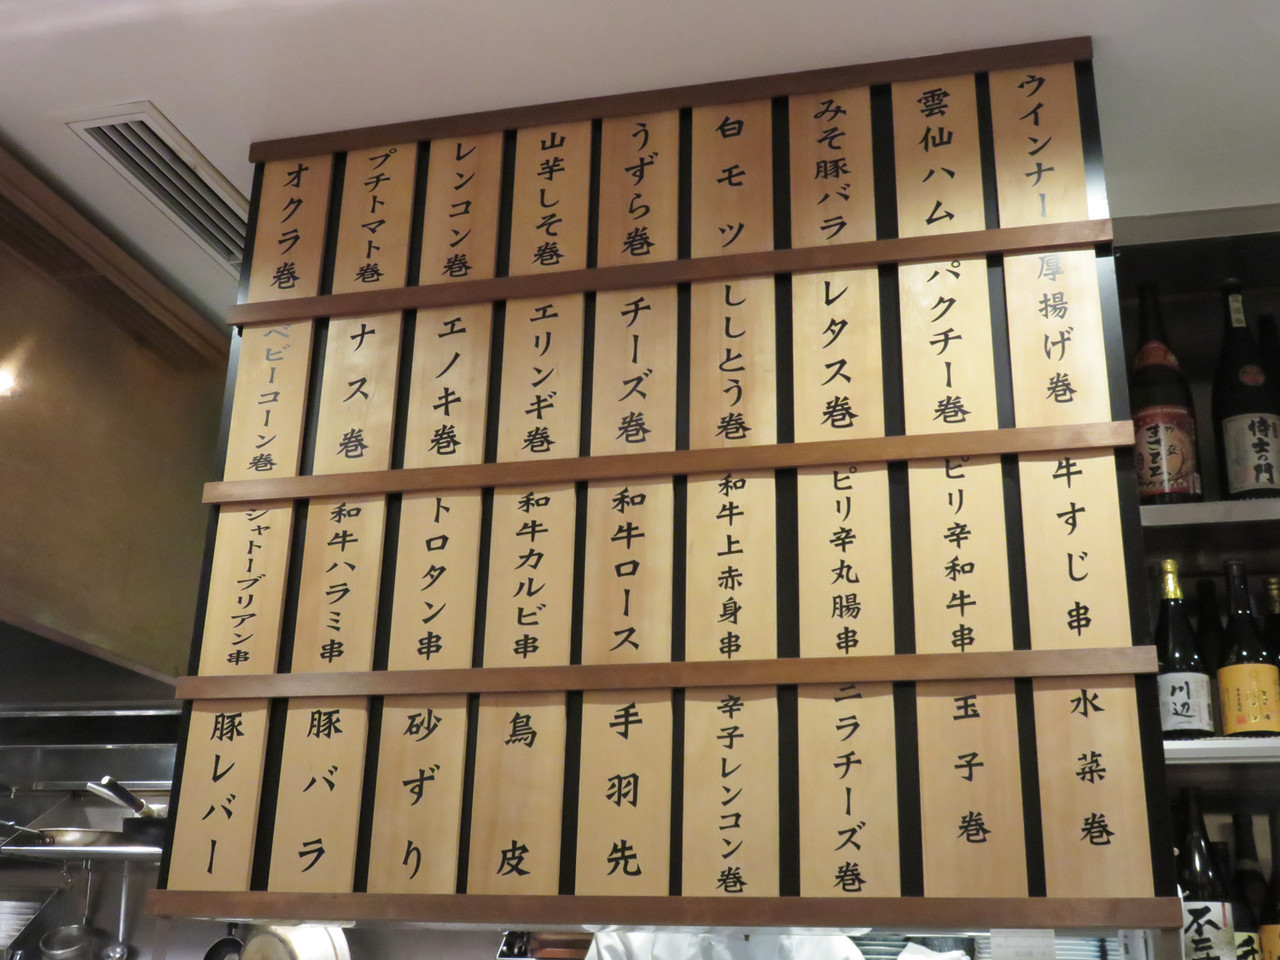 ウインナー
雲仙ハム
みそ豚バラ
白モツ
うずら巻
山芋しそ巻
レンコン巻
プチトマト巻
オクラ巻
厚揚げ巻
パクチー巻
レタス巻
ししとう巻
チーズ巻
エリンギ巻
エノキ巻
ナス巻
ベビーコーン巻
牛すじ串
ピリ辛和牛串
ピリ辛丸腸串
和牛上赤身串
和牛ロース
和牛カルビ串
トロタン串
和牛ハラミ串
シャトーブリアン串
水菜巻
玉子巻
ニラチーズ巻
辛子レンコン巻
手羽先
鳥皮
砂ずり
豚バラ
豚レバー
侍士の門
川辺